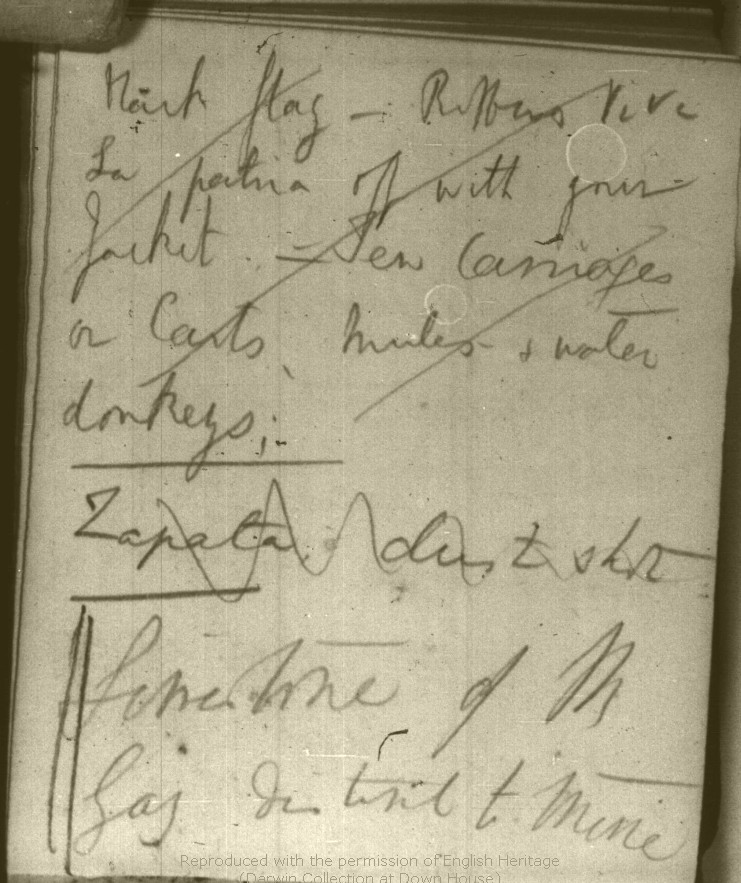 flag — Ribbons Viva
La patria off with your
Jacket. — Few Carriages
or Carts, mules & water
donkeys;
Zapata dust shot
Limestone of Mr
Gay distinct to mine
Reproduced with the permission of English Heritage
(Darwin Collection at Down House)